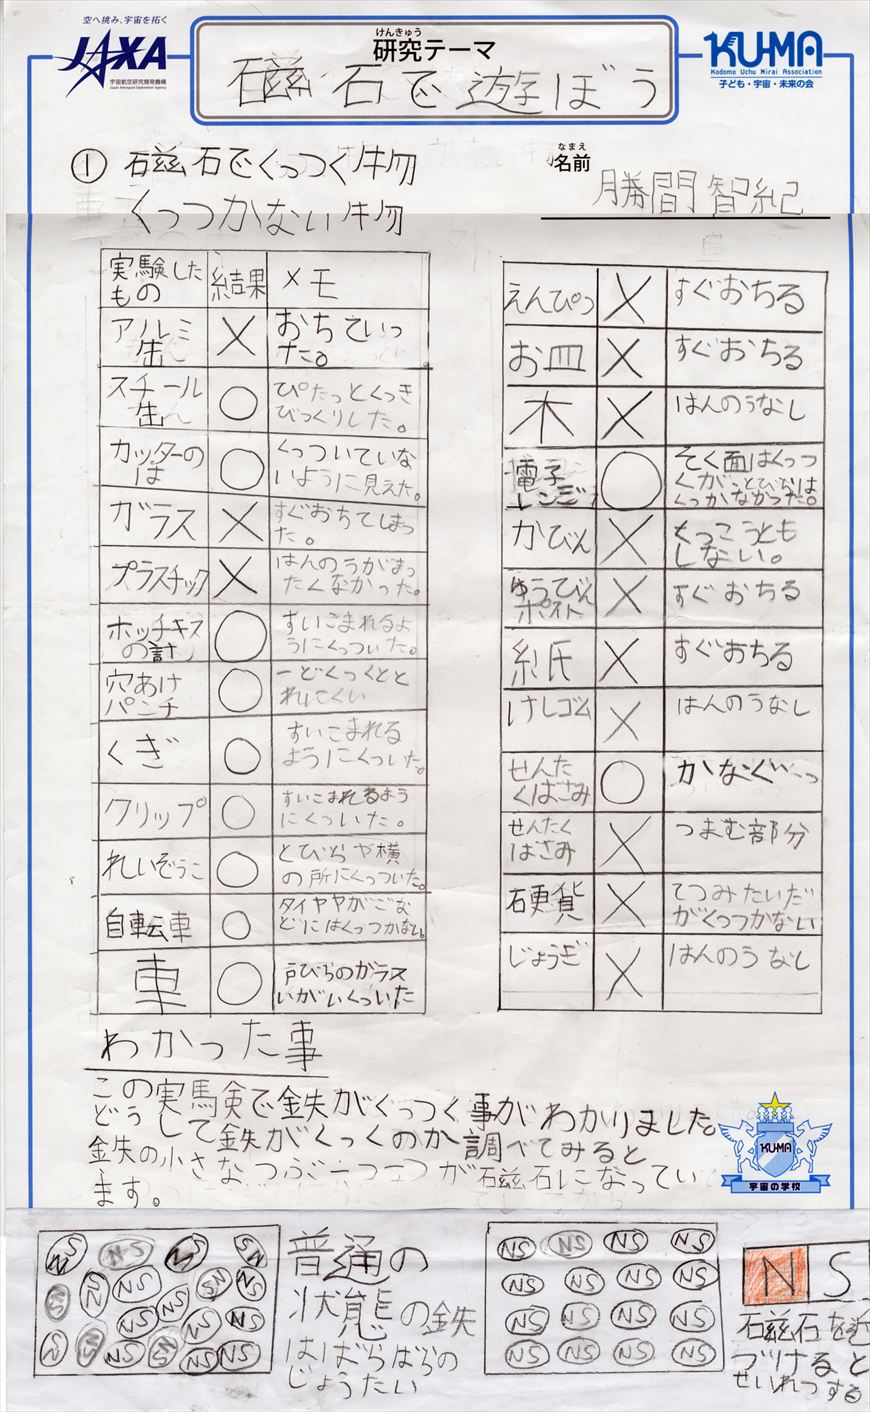 空へ挑み、宇宙を拓く
JAXA
宇宙航空研究開発機構
Japan Aerospace Exploration Agency
けんきゅう
研究テーマ
磁石で遊ぼう
KU-MA
Kodomo Uchu Mirai Association
子ども・宇宙・未来の会
① 磁石でくっつく物
くっつかない物
なまえ
名前
勝間智紀
実験したもの 結果 メモ
アルミ缶 × おちていった。
スチール缶 ○ ぴたっとくっきびっくりした。
カッターのは ○ くっついていないように見えた。
ガラス × すぐおちてしまった。
プラスチック × はんのうがまったくなかった。
ホッチキスの針 ○ すいこまれるようにくっついた。
穴あけパンチ ○ 一どくっくととれにくい
くぎ ○ すいこまれるようにくっついた。
クリップ ○ すいこまれるようにくっいた。
れいぞうこ ○ とびらや横の所にくっついた。
自転車 ○ タイヤやかごなどにはくっつかない。
車 ○ 戸びらのガラスいがいくっいた
えんぴつ × すぐおちる
お皿 × すぐおちる
木 × はんのうなし
電子レンジ ○ そく面はくっつくが、とびらはくっかなかった。
かびん × くっこうともしない。
ゆうびんポスト × すぐおちる
紙 × すぐおちる
けしゴム × はんのうなし
せんたくばさみ ○ かなぐ
せんたくばさみ × つまむ部分
硬貨 × てつみたいだがくっつかない
じょうぎ × はんのうなし
わかった事
この実験で鉄がくっつく事がわかりました。
どうして鉄がくっくのか調べてみると
鉄の小さなつぶ一つ一つが磁石になってい
ます。
KU-MA
宇宙の学校
普通の
状態の鉄
はばらばらの
じょうたい
N S
磁石を近
づけると
せいれつする